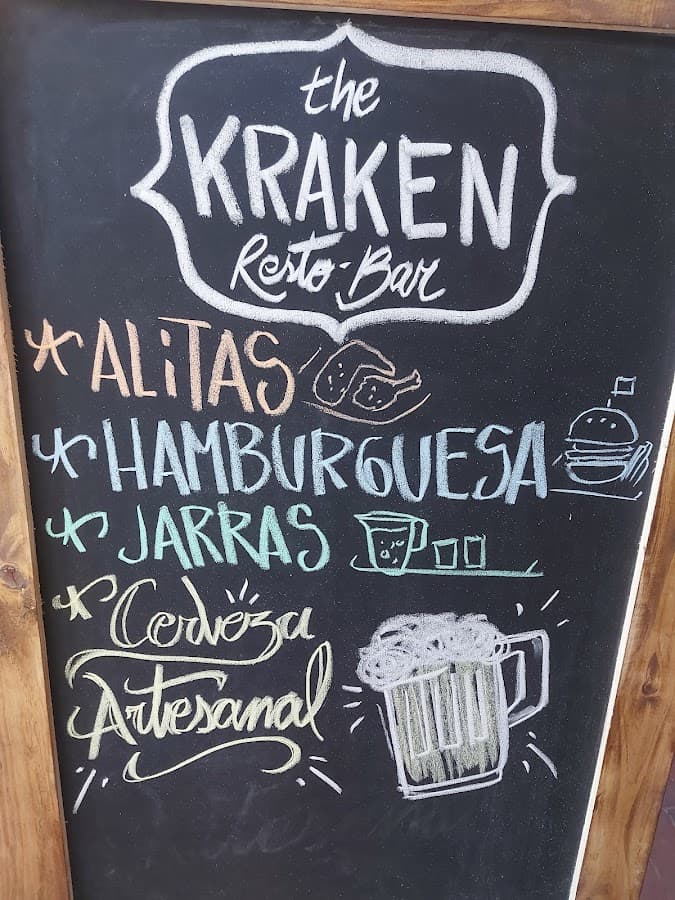 the
KRAKEN
Resto-Bar
* ALiTAS
* HAMBURGUESA
* JARRAS
* Cerveza
Artesanal